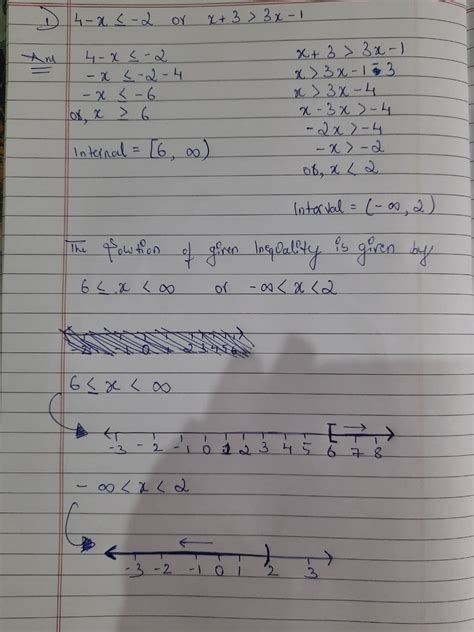 1) 4-x ≤ -2 or x+3 > 3x-1
Ans 4-x ≤ -2
-x ≤ -2-4
-x ≤ -6
or, x ≥ 6
Interval = [6, ∞)
x+3 > 3x-1
x > 3x-1-3
x > 3x-4
x-3x > -4
-2x > -4
-x > -2
or, x < 2
Interval = (-∞, 2)
The solution of given Inequality is given by
6 ≤ x < ∞ or -∞ < x < 2
6 ≤ x < ∞
-3 -2 -1 0 1 2 3 4 5 6 7 8
-∞ < x < 2
-3 -2 -1 0 1 2 3